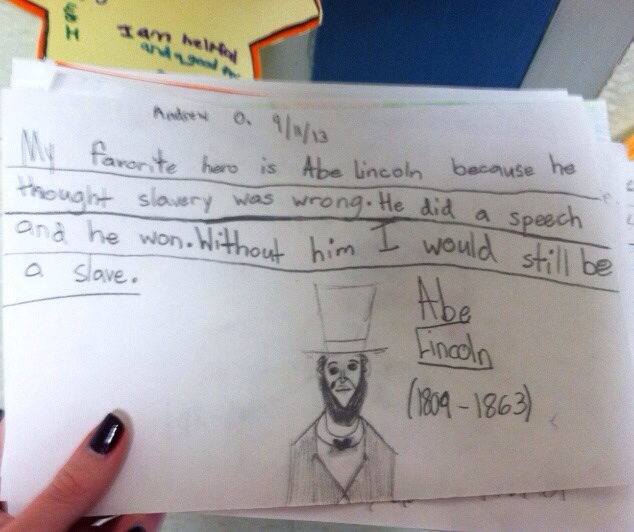 S
H
I am helpful
and a good
Andrew O. 9/11/13
My favorite hero is Abe lincoln because he
thought slavery was wrong. He did a speech
and he won. Without him I would still be
a slave.
Abe
Lincoln
(1809-1863)